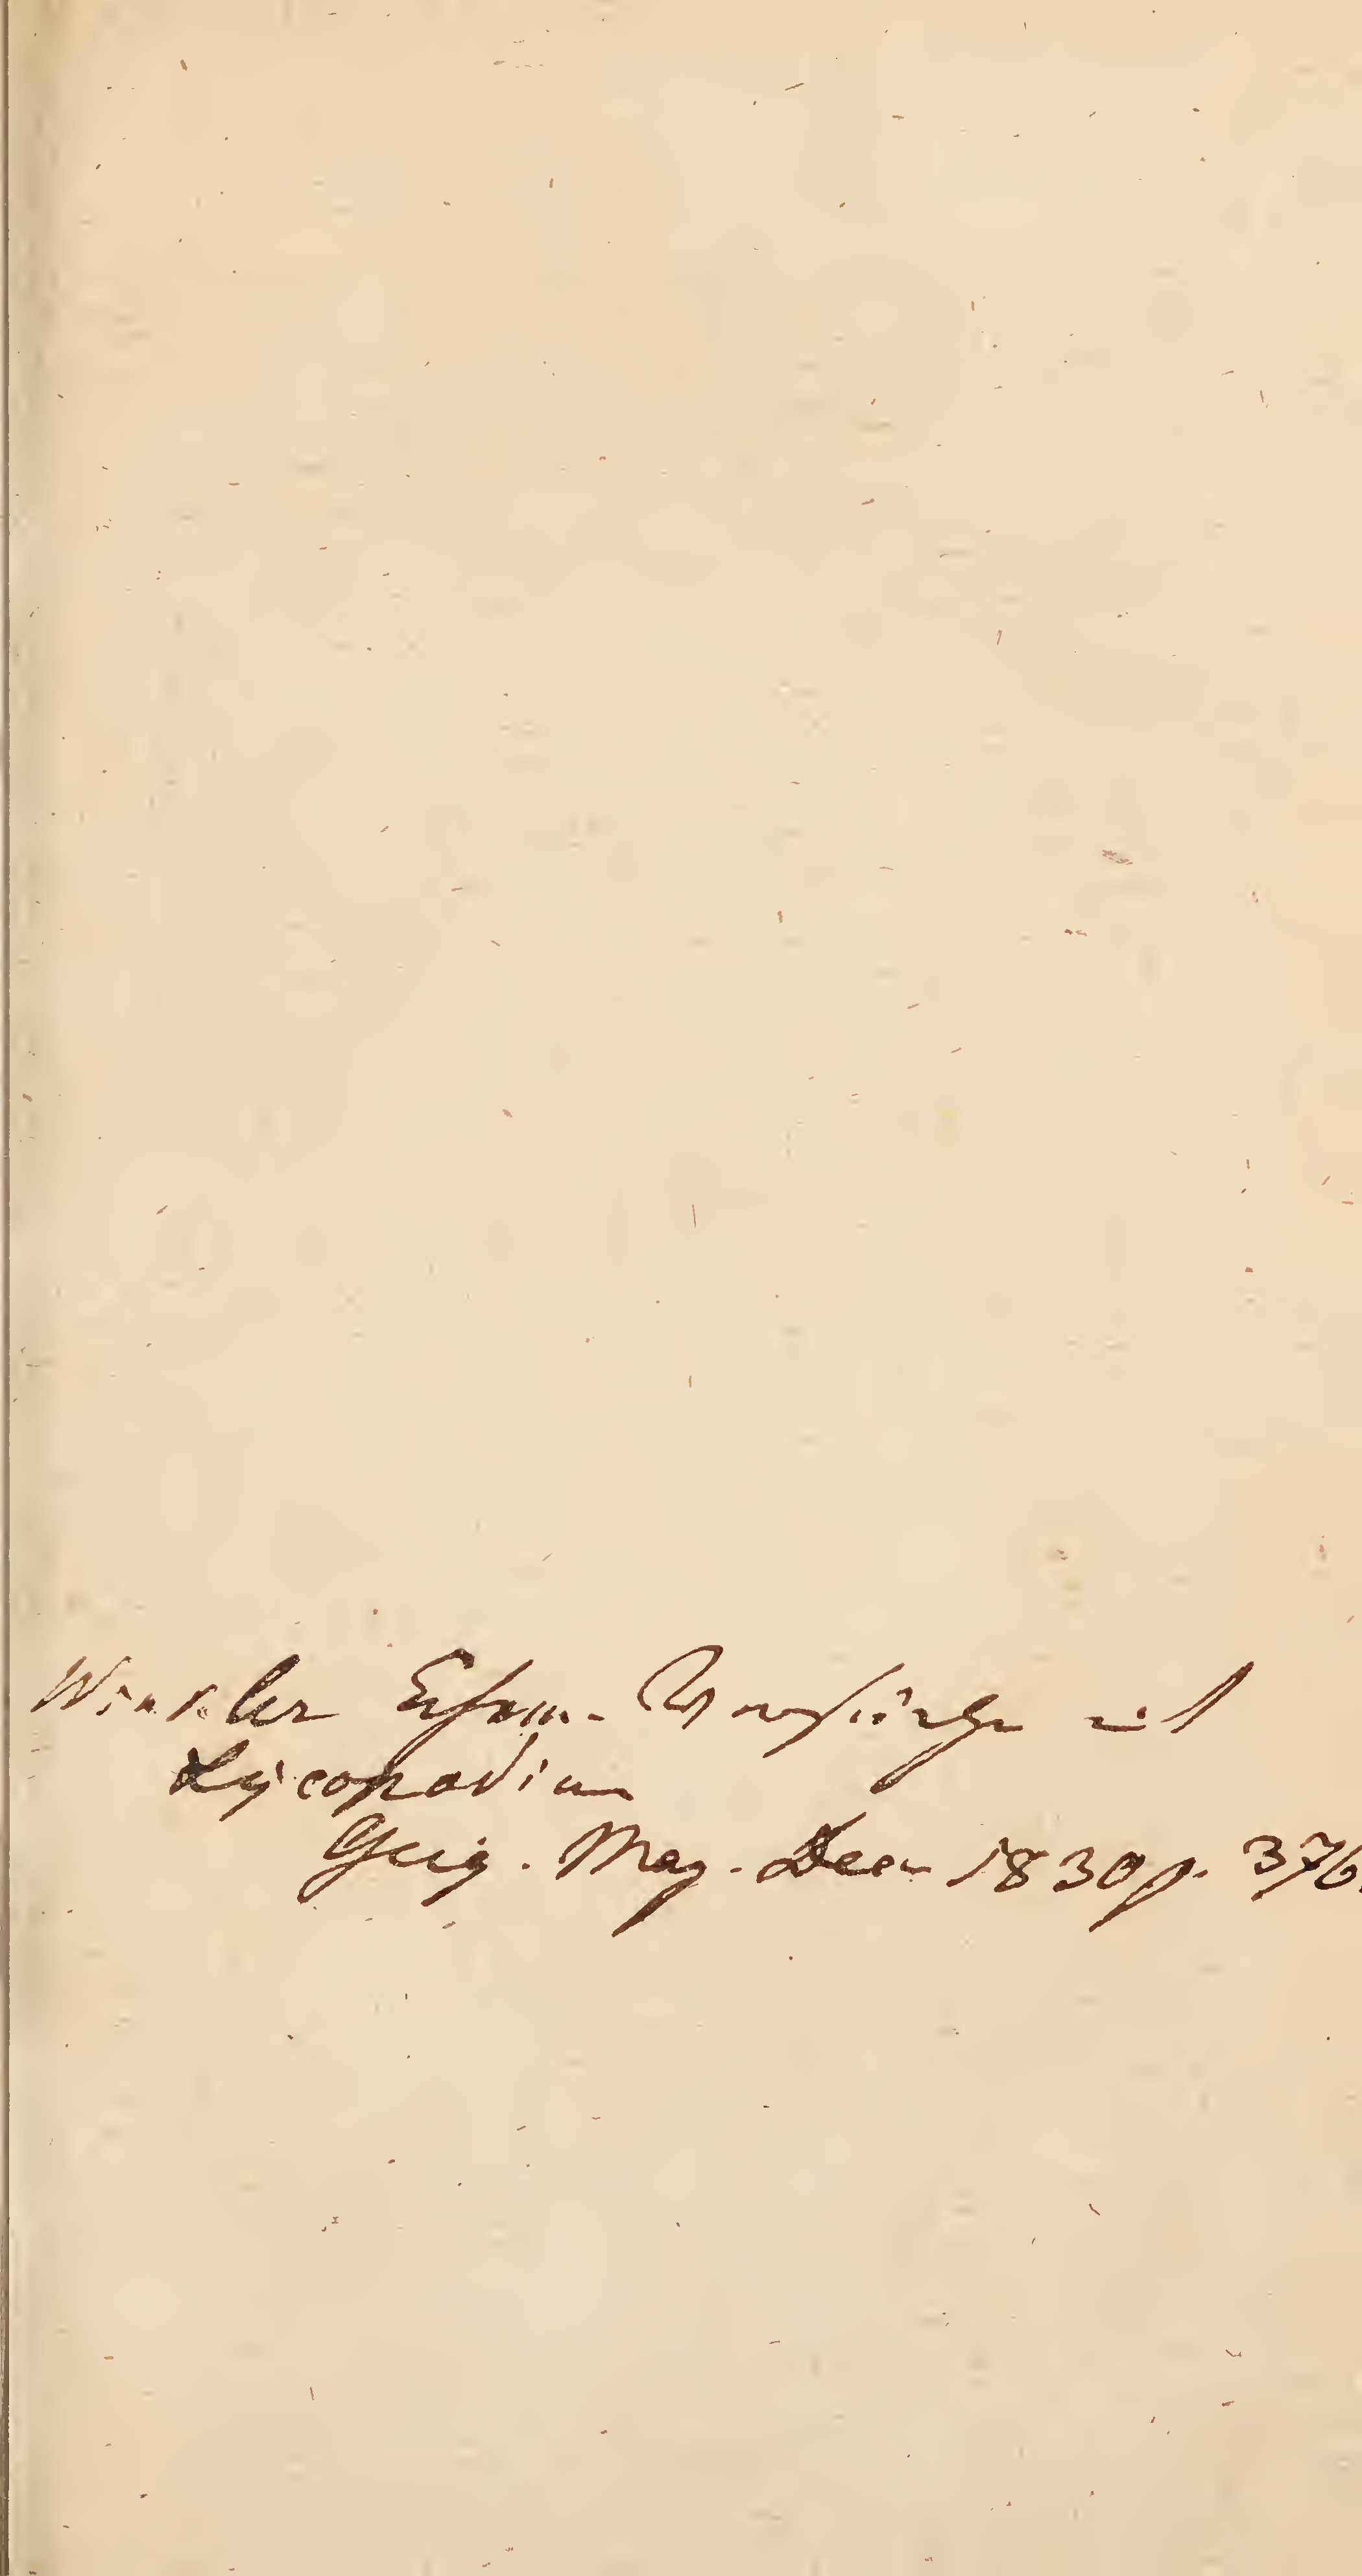 Winkler chem. Versuche mit
Lycopodium
Geig. Mag. Decr 1830 p. 376.